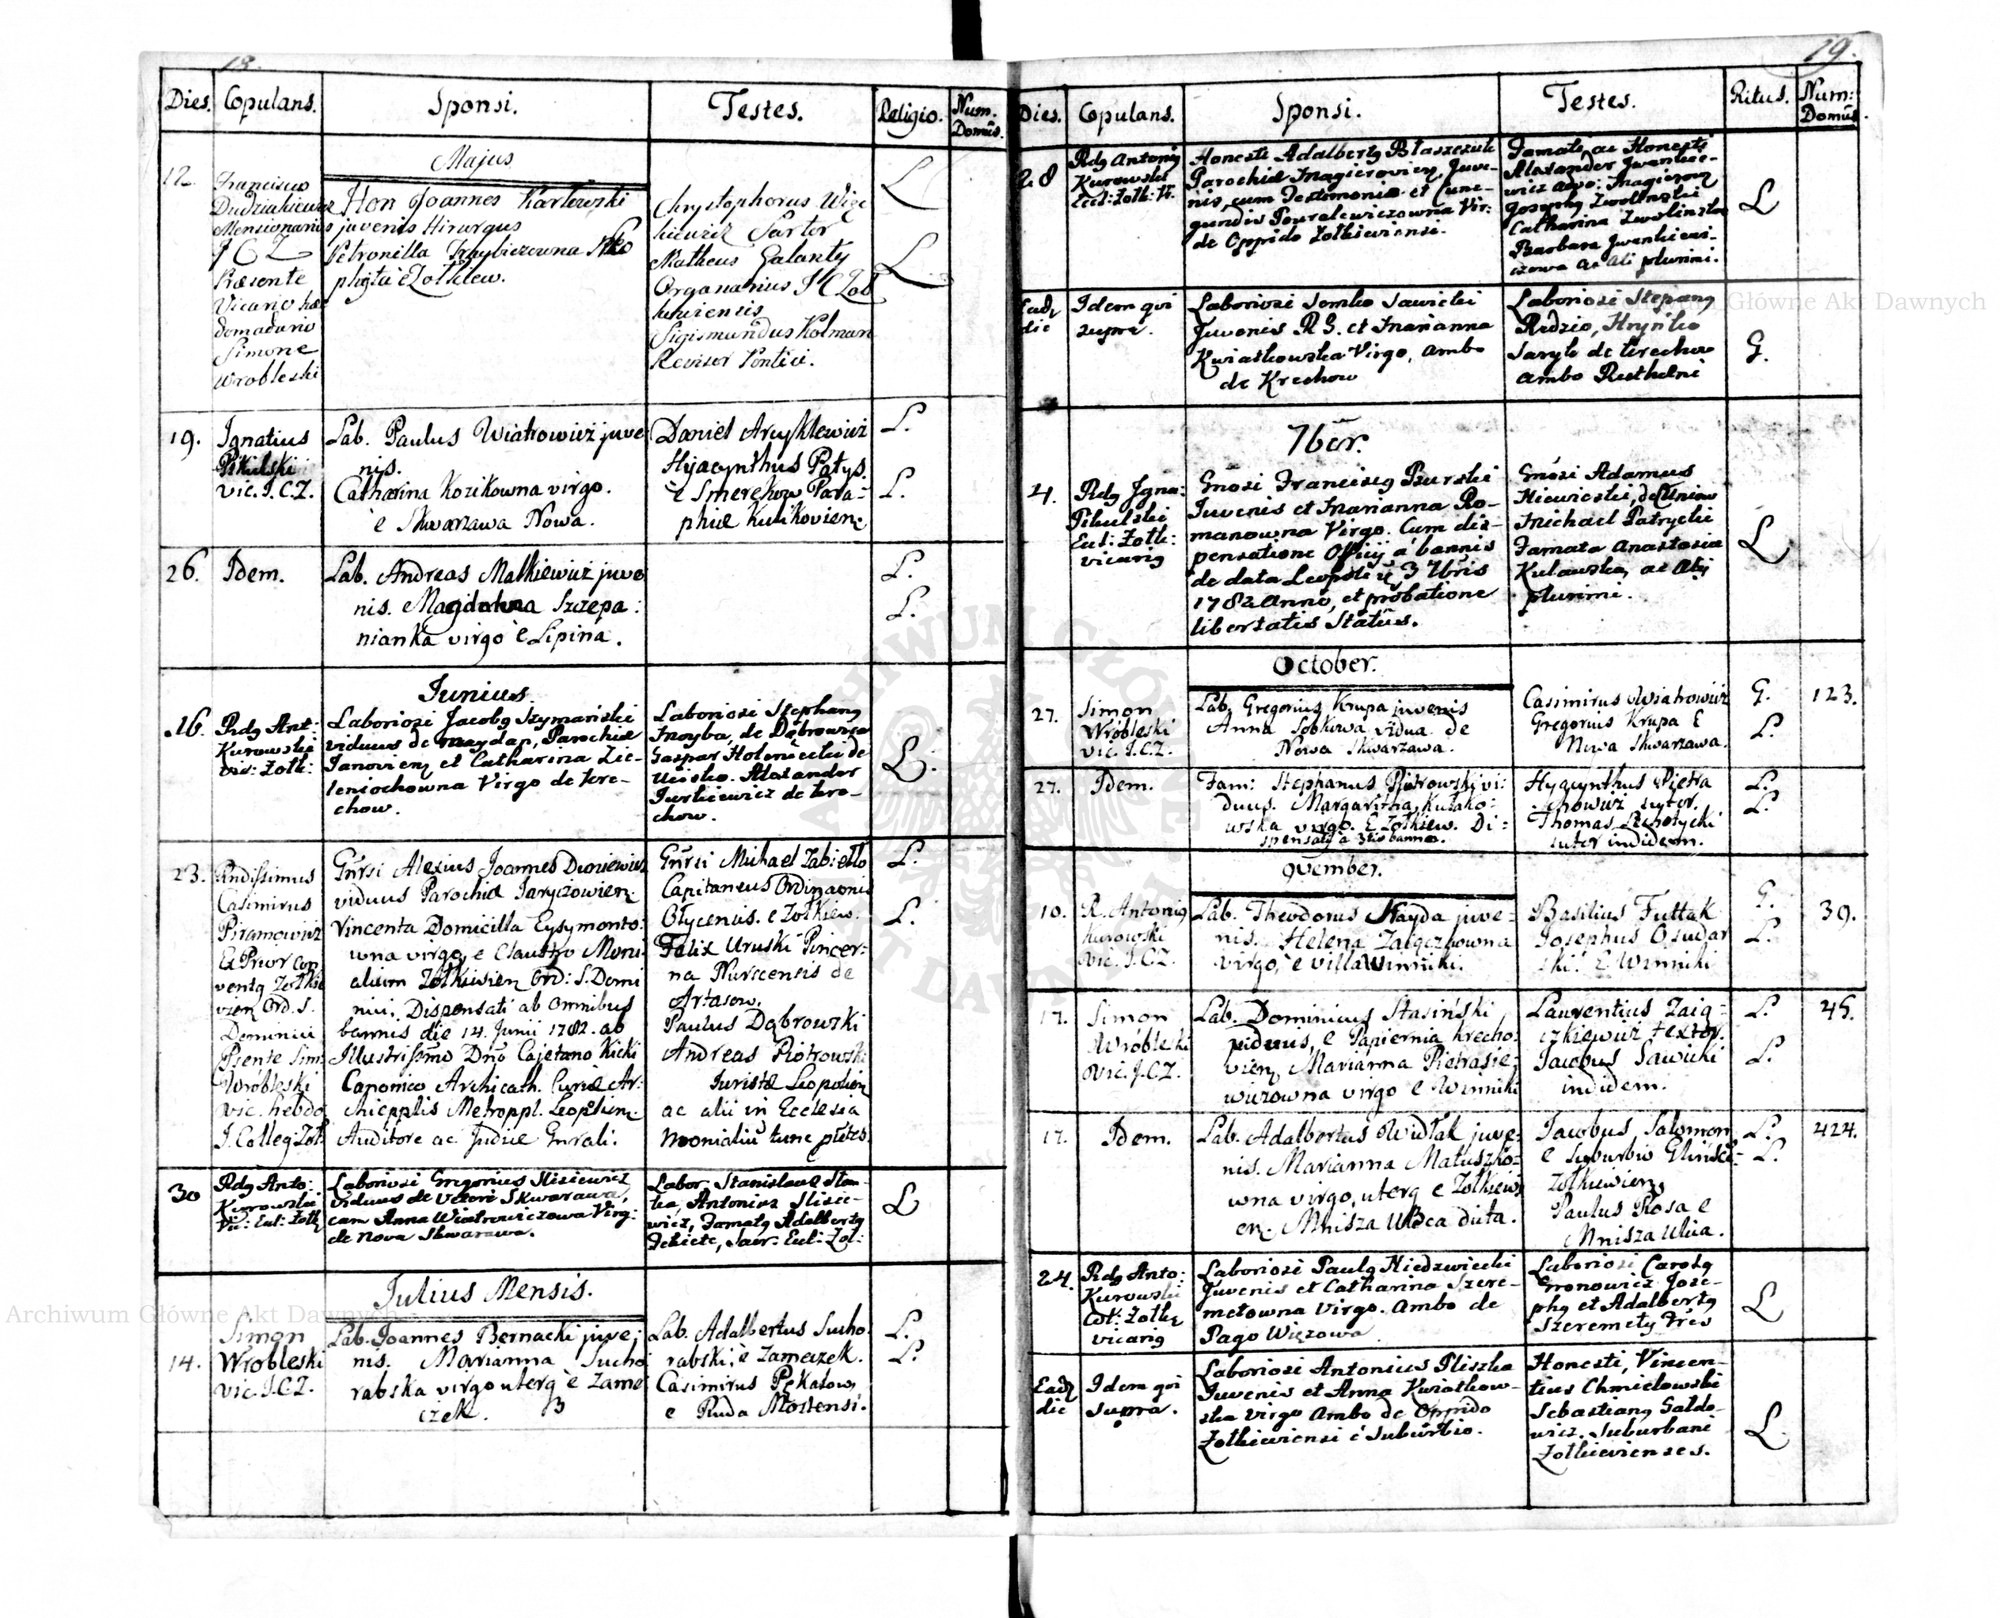 18.
Dies. Copulans. Sponsi. Testes. Religio. Num. Domûs.
Majus
12.
Franciscus
Dudziakiewicz
Mensionarius
J C Z
Præsente
Vicario
domadario
Simone
Wrobleski
Hon Joannes Karlewski
juvenis Hirurgus
Petronilla
phyta è Zolkiew.
Chrystophorus
Sartor
Matheus Galanty
Organarius J C Zol
kiviensis
Sigismundus Kolman
Revisor Pontici.
L
L
19.
Ignatius
Pikulski
vic. J. C. Z.
Lab. Paulus Wiatrowicz juve
nis.
Catharina Kozikowna virgo.
è Skwarzawa Nowa.
Daniel Arcyklewicz
Hyacynthus Patys
è Smerekow Paro-
phiæ Kulikovien:
L.
L.
26.
Idem.
Lab. Andreas Malkiewicz juve
nis. Magdalena Szczepa:
nianka virgo è Lipina.
L.
L.
Junius.
16.
Rdg Ant:
Kurowski
vic: Zolk:
Laboriosi Jacobg Szymański
viduus de Maydan, Parochiæ
Janovien et Catharina Zie-
leniochowna Virgo de tere-
chow.
Laboriosi Stephang
Troyba, de Dąbrowica
Gaspar Holowiecki de
Alexander
Jurkiewicz de tere-
chow.
L.
23.
Rndissimus
Casimirus
Piramowicz
Ex Prior Con
ventg Zolkie
vien Ord. S.
Dominici
Psente Sim:
Wróbleski
vic. hebdo
J. Colleg: Zol:
Gnrsi Alexius Joannes Duniewicz
viduus Parochiæ Jaryczowien:
Vincenta Domicilla Eysymonto:
wna virgo, e Claustro Moni
alium Zolkievien Ord: S. Domi
nici, Dispensati ab omnibus
bannis die 14. Junii 1782. ab
Illustrissmo Dno Cajetano Kicki
Canonico Archicath. Curiæ Ar:
chiepplis Metroppl. Leopolien:
Auditore ac Judice Gnrali.
Gnrsi Michael Zabiełło
Capitaneus Ordinaonis
Olycensis. e Zolkiew.
Felix Uruski Pincer:
na Nurscensis de
Artasow.
Paulus Dąbrowzki
Andreas Piotrowski
Juristæ Leopolien
ac alii in Ecclesia
Monialiu tunc pntes.
L.
L.
30
Rdg Anto:
Kurowski
Vic: Eccl: Zolk
Laboriosi Gregorius Slisiewicz
viduus de Veteri Skwarawa,
cum Anna Wiatrowiczowa Virg:
de nova Skwarawa.
Labor. Stanislaus
Antonius Slisie-
wicz, Famatg Adalbertg
Eccl: Zol:
L
Julius Mensis.
14.
Simon
Wrobleski
vic. J. C. Z.
Lab. Joannes Bernacki juve;
nis. Marianna Sucho
rabska virgo uterg è Zame
czek.
Lab. Adalbertus Sucho.
rabski, è Zameczek.
Casimirus Pękalow,
e Ruda Mostensi.
L.
L.
19.
Dies. Copulans. Sponsi. Testes. Ritus. Num: Domûs
28
Rdg Antonig
Kurowski
Eccl: Zolk: V.
Honesti Adalbertg Błaszczuk
Parochiæ Magierovien, Juve-
nis, cum Testimonio et Cune-
gundis Powalewiczowna Vir:
de Oppido Zolkieviensi.
Famati ac Honesti
Alexander Jwankie-
wicz
Josephg Zwolinski
Catharina Zwolinska
Barbara Jwankiewi-
czowa ac alii plurimi.
L
Ead
die
Idem qui
supra.
Laboriosi Semko Sawicki
Juvenis R G. et Marianna
Kwiatkowska Virgo, ambo
de Krechow
Laboriosi Stepang
Redzio, Hryńko
Saryk de Krechow
ambo Rutheni
G.
7br.
4.
Rdg Igna:
Pikulski
Eccl: Zolk:
vicarig
Gnosi Franciscg Pzurski
Juvenis et Marianna Ro-
manowna Virgo. Cum dis-
pensatione Officij à bannis
de data Leopoli 3 7bris
1782 anno, et probatione
libertatis Statûs.
Gnosi Adamus
Michael Patrycki
Famata Anastasia
Kulawska, ac alij
plurimi.
L
October.
27.
Simon
Wrobleski
vic. J. C. Z.
Lab. Gregorius Krupa juvenis
Anna Sobkowa vidua de
Nowa Skwarzawa.
Casimirus Wiatrowicz
Gregorius Krupa E
Nowa Skwarzawa.
G.
L.
123.
27.
Idem.
Fam: Stephanus Piotrowski vi-
duus. Margaritha Kulako:
wska virgo. E Zolkiew. Di:
spensatg a 3tio banno.
Hyacynthus Pietra
chowicz sutor.
Thomas Szchotycki
sutor indidem.
L.
L.
9vember.
10.
R. Antonig
Kurowski
vic. J. C. Z.
Lab. Theodorus Nayda juve-
nis. Helena Zaięczkowna
virgo, è villa Winniki.
Basilius Futtak
Josephus Osudar
ski. E Winniki
G.
L.
39.
17.
Simon
Wróbleski
Vic. J. C. Z.
Lab. Dominicus Stasiński
viduus, e Papiernia Krecho:
vien, Marianna Pietrasie,
wiczowna virgo e Winniki
Laurentius Zaię-
czkiewicz textor.
Jacobus Sawicki
indidem.
L.
L.
45.
17.
Idem.
Lab. Adalbertus Widłak juve:
nis. Marianna Matuszko-
wna virgo, uterg e Zolkiew
en. Mnisza Ulica dicta.
Jacobus Salomon
e Suburbio Glinsc:
Zolkiewien,
Paulus Rosa e
Mnisza Ulica.
L.
L.
424.
24.
Rdg Anto:
Kurowski
Zolk
vicarig
Laboriosi Paulg Niedzwiecki
Juvenis et Catharina Szere-
metowna Virgo. Ambo de
Pago Wiązowa
Laboriosi Carolg
Gronowicz Jose-
phg et Adalbertg
Szeremety Frès
L
Ead
die
Idem qui
supra.
Laboriosi Antonius Pliszka
Juvenis et Anna Kwiatkow-
ska Virgo ambo de Oppido
Zolkieviensi è Suburbio.
Honesti, Vincen-
tius Chmielowski
Sebastiang Saldo-
wicz. Suburbani
Zolkievienses.
L.
Archiwum Główne Akt Dawnych
Archiwum Główne Akt Dawnych
ARCHIWUM GŁÓWNE AKT DAWNYCH